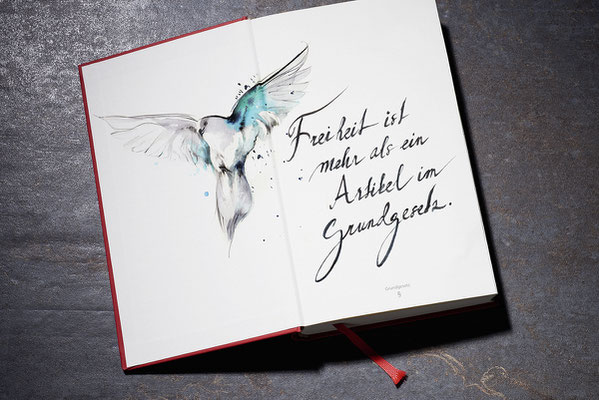 Freiheit ist
mehr als ein
Artikel im
Grundgesetz.
Grundgesetz